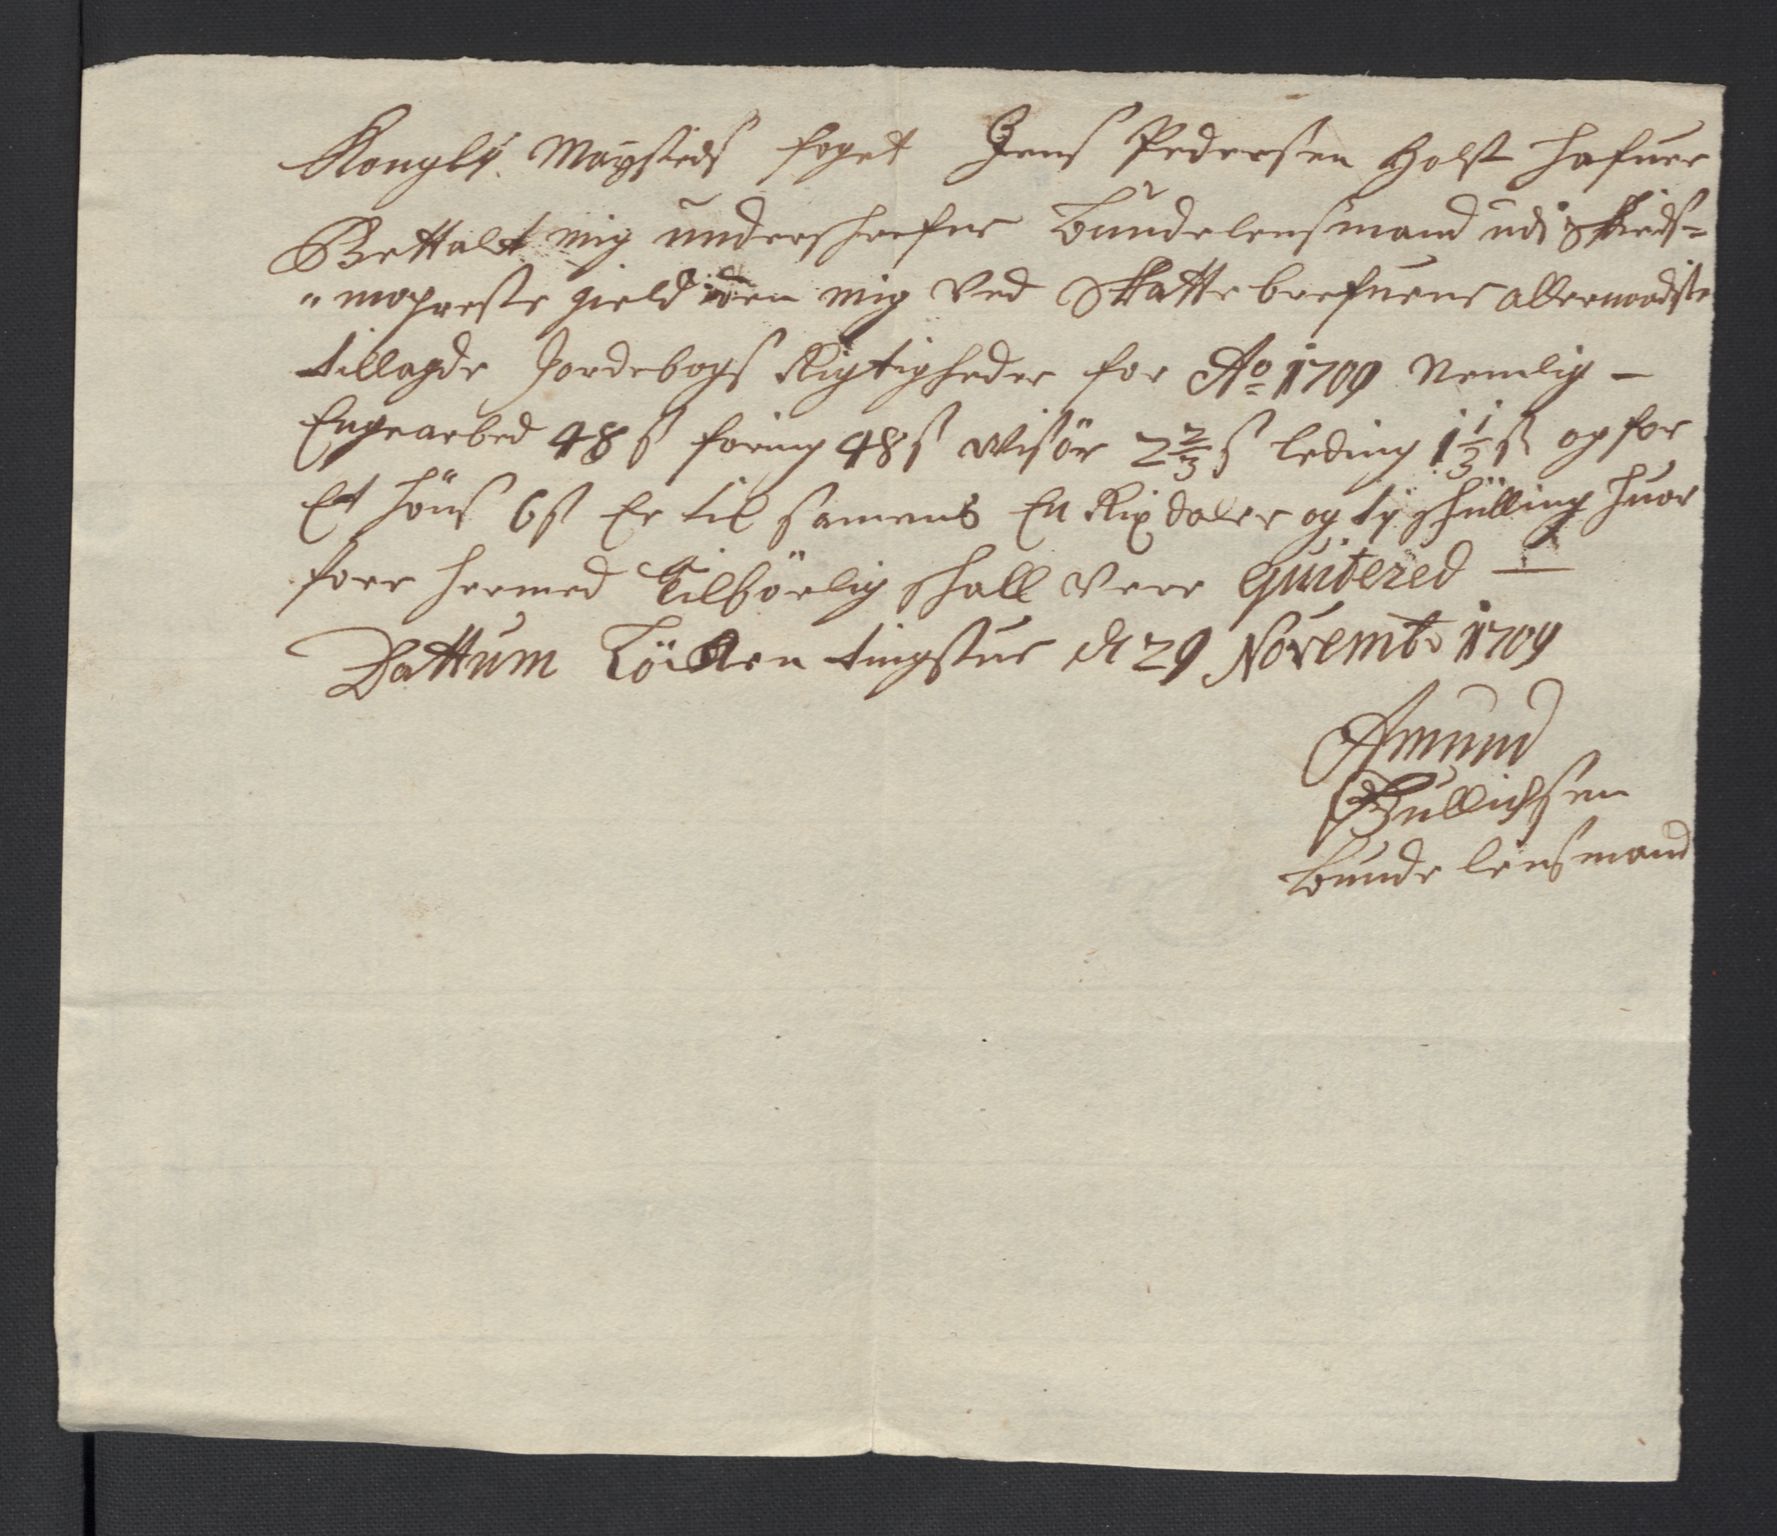 Konglig Mayestedz foget Jens Pedersen Holst hafuer
Bettalt mig underschrefne bundelensmand udi Skieds=
"moepreste gield den mig ved Skatte brefuene allernaadiste
tillagde Jordebogs Rigtigheder for Ao 1709 Nemlig -
Engearbed 48 s foring 48 s Wisør 2 2/3 s leding 1 1/3 s og for
Et høns 6 s Er til samens En Rixdaler og ty schilling huor
foer hermed tilbørlig schall vere quitered —
Dattum Løcken tingstue d 29 Novembr 1709
Amund
Gullichsen
bunde lensmand